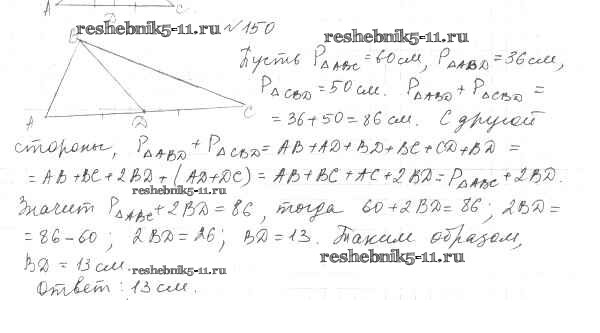 A C
reshebnik5-11.ru №150
reshebnik5-11.ru
B
Пусть P△ABC = 60 см, P△ABD = 36 см,
P△CBD = 50 см. P△ABD + P△CBD =
A D C
= 36 + 50 = 86 см. С другой
стороны, P△ABD + P△CBD = AB + AD + BD + BC + CD + BD =
= AB + BC + 2BD + (AD + DC) = AB + BC + AC + 2BD = P△ABC + 2BD.
reshebnik5-11.ru
Значит P△ABC + 2BD = 86, тогда 60 + 2BD = 86; 2BD =
= 86 - 60; 2BD = 26; BD = 13. Таким образом,
BD = 13 см.
reshebnik5-11.ru
reshebnik5-11.ru
Ответ: 13 см.